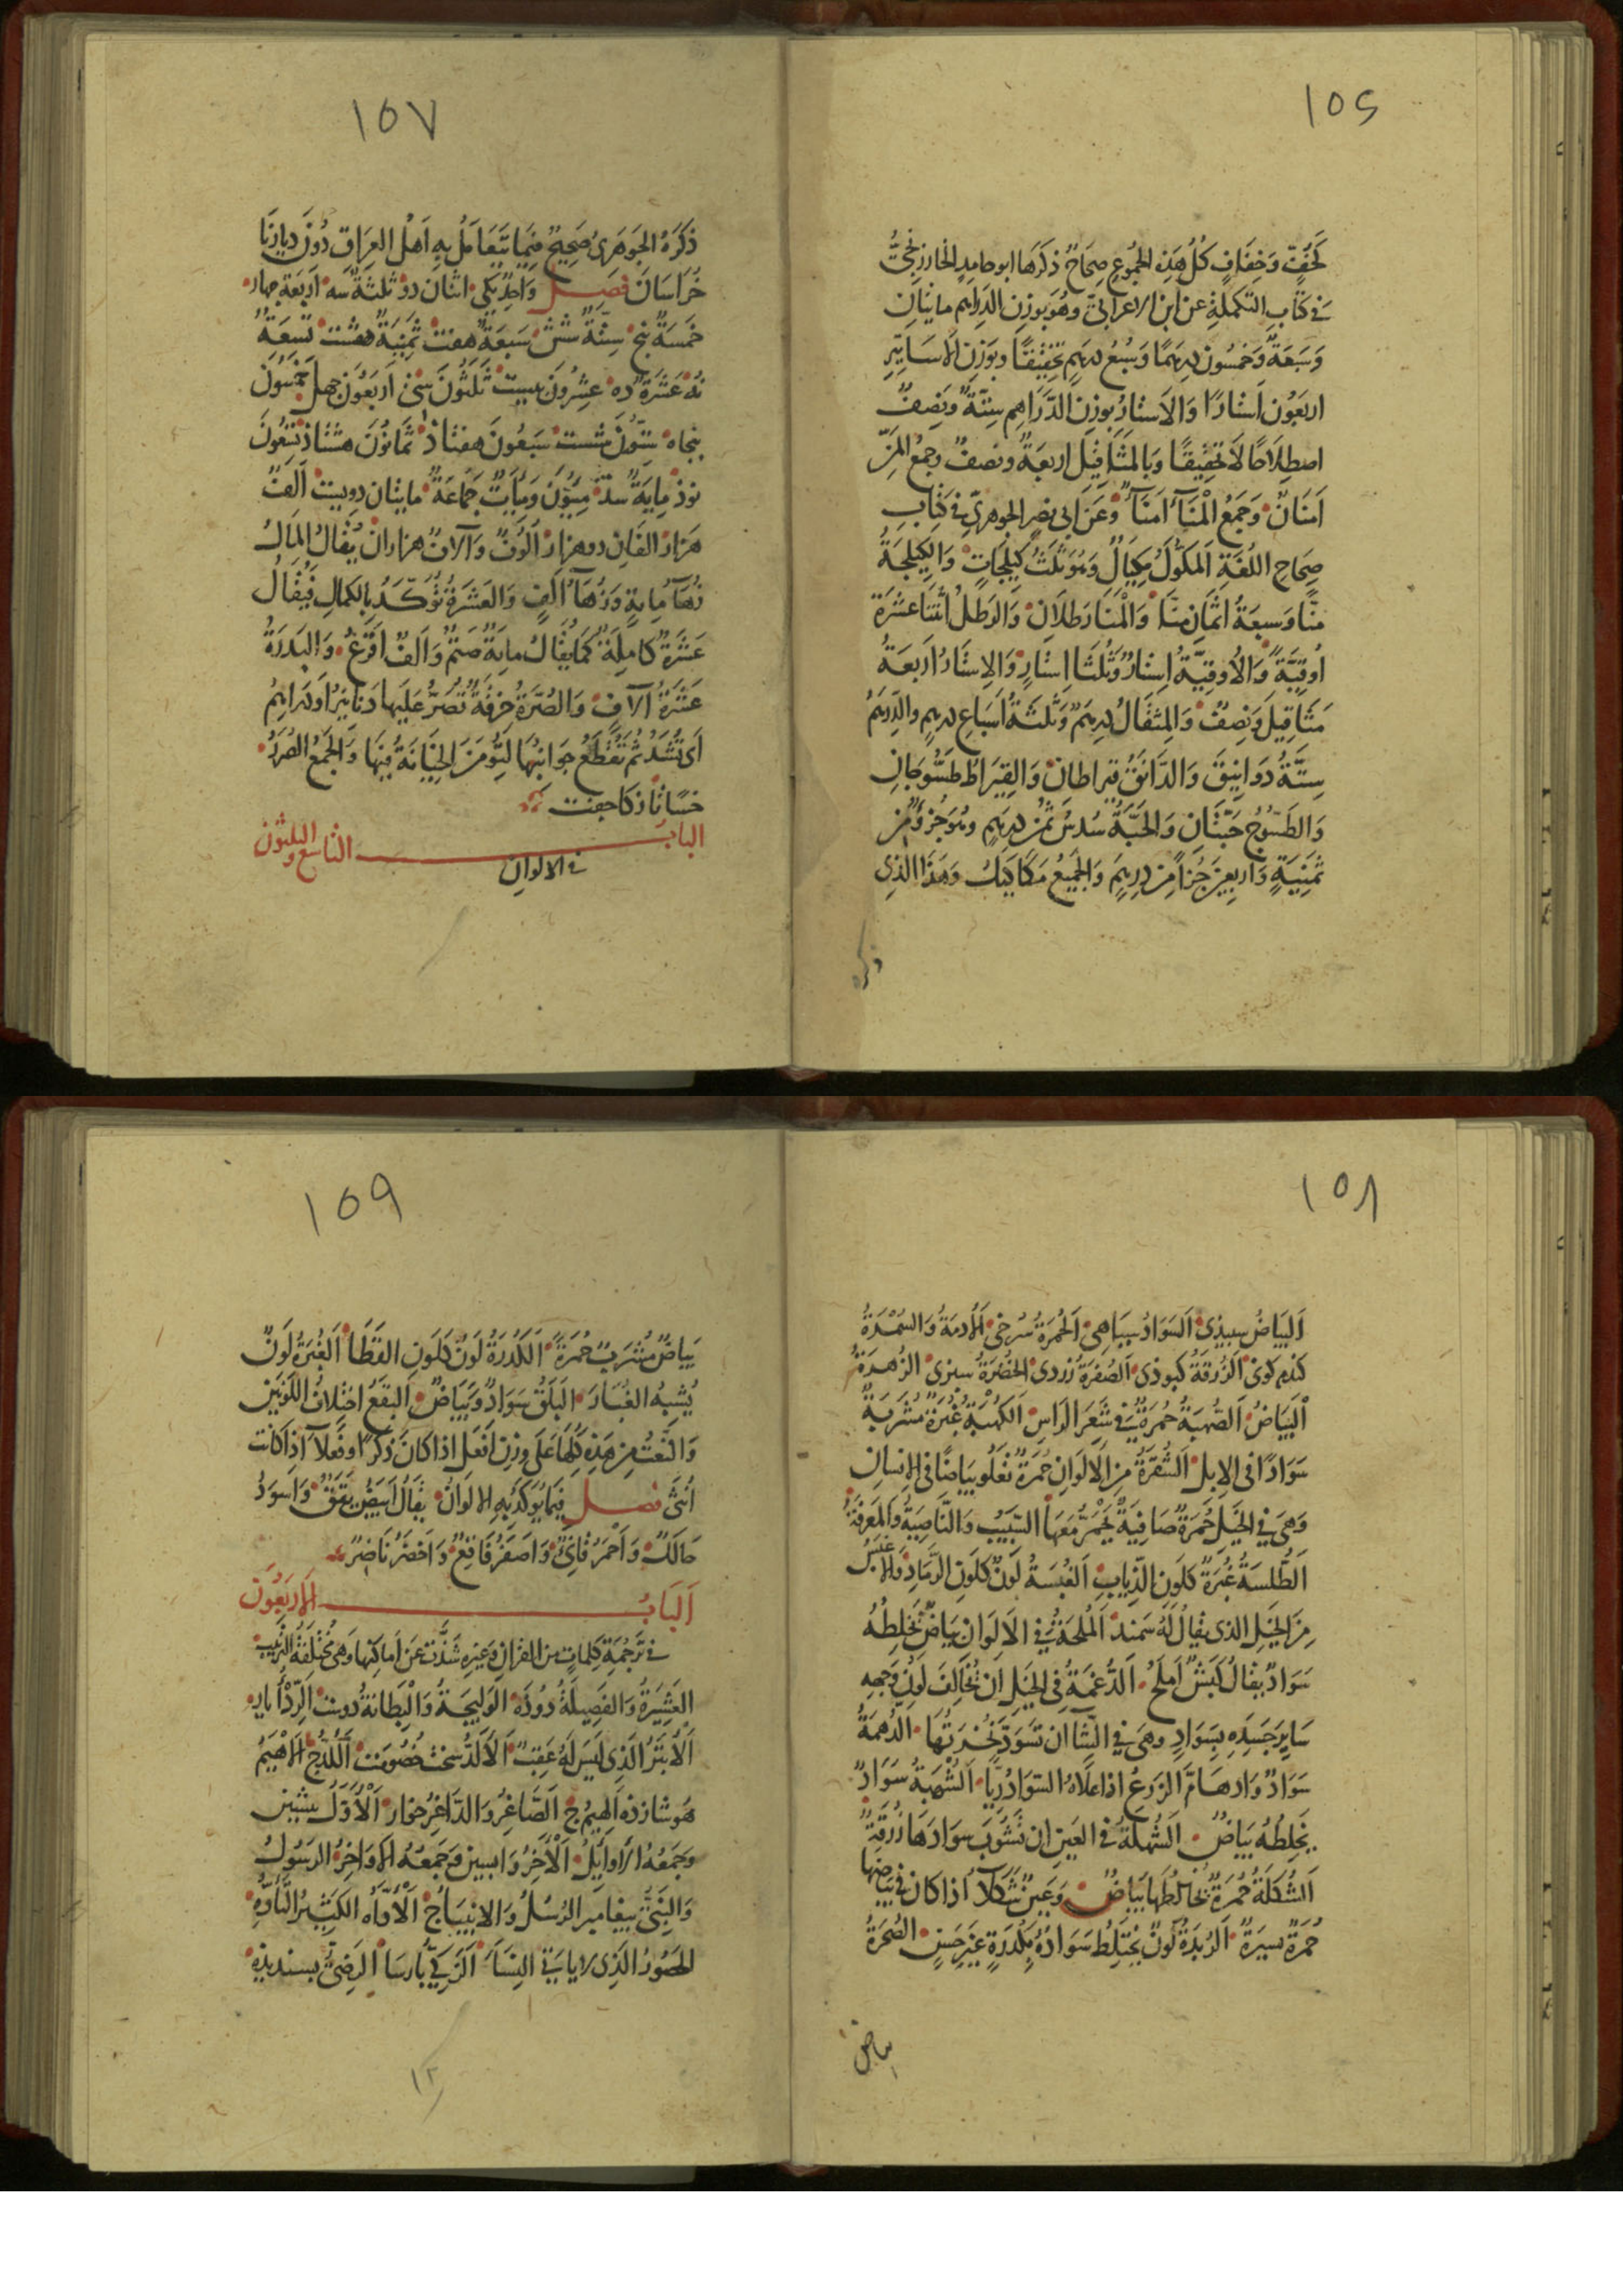 ١٥٦
كَخُفٍّ وَخِفَافٍ كُلُّ هَذِهِ الجُموُعِ صِحَاحٌ ذكَرَهَا ابو حامِدٍ الخارزنجىُّ
فى كتابِ التكملةِ عن ابن الاعرابىّ وهُوَ بوزنِ الدَراهِم مائتانِ
وَسَبعَةٌ وَخَمسُون دِرهَمًا وَسُبعُ دِرهَمٍ تحقيقًا وبوَزنِ الاَسَاتِيرِ
اربَعُون اَستارًا وَالاَستارُ بوزنِ الدَّرَاهِم سِتَّةٌ وَنِصفٌ
اصطِلاَحًا لاَ تحقِيقًا وَبالمثَاقِيلِ اربعَةٌ ونصفٌ وجمعُ المَنِّ
اَمنَانٌ وَجَمعُ الْمَنَا اَمنَاءٌ وَعَن اَبى نصرٍ الجوهرىّ فى كتابِ
صِحَاحِ اللُغَةِ اَلمكّوُكُ مِكيَالٌ وَهُوَ ثلَثُ كَيْلجَاتٍ وَالكَيلجَةُ
مَنًّا وَسبعَةُ اَثمَانِ مَنًا وَالْمَنَا رَطلاَنِ وَالرَطلُ اثنَتَا عشرَةَ
اُوقِيَّةً وَالاُوقِيَّةُ اِستارٌ وَثُلثَا اِستارٍ وَالاِستارُ اَربَعَةُ
مَثَاقِيلَ وَنِصفٌ وَالمِثقَالُ دِرهَمٌ وَثَلثَةُ اَسبَاعِ دِرهَمٍ والدِّرهَمُ
سِتَّةُ دَوَانِيقَ وَالدَّانَقُ قيراطانِ وَالقِيرَاطُ طَسُّوجَانِ
وَالطَسّوُجُ حَبّتَانِ وَالحَبَّةُ سُدسُ ثُمُنِ دِرهَمٍ وهُوَ جُزؤٌ مِن
ثمَنِيَةٍ وَاربعِينَ جُزأً مِن دِرهَمٍ وَالجَمِيعُ مَكَاكيكُ وهَذَا الذِى
ذكره
١٥٧
ذكرَهُ الجَوهَرىُّ صَحِيحٌ فِيمَا يَتَعَامَلُ بِهِ اَهلُ العِرَاقِ دُونَ دِيارِنَا
خُرَاسَانَ فصل وَاحِدٌ يكى اثنان دو ثلثةٌ سه اَربَعَةٌ چهار
خمسَةٌ پنج سِتّةٌ شش سَبعَةٌ هفت ثمنِيَةٌ هشت تسِعَةٌ
نه عَشَرَةٌ ده عِشرُونَ بيست ثَلثُونَ سى اَربَعُونَ چهل خَمسُونَ
پنجاه سِتّونَ شست سَبعُونَ هفتاذ ثمَانُونَ هشتاذ تِسعُونَ
نوذ مِايَةٌ سد مِئوُنَ وَمِئَاتٌ جَمَاعَةٌ مايتان دويست اَلفٌ
هزار الفَانِ دو هزار اُلُوفٌ وَآلافٌ هزاران يُقالُ المَالُ
زُهَآءُ مِايةٍ وَزُهَآءُ اَلفٍ وَالعَشَرَةُ تُؤَكَّدُ بالكمالِ فَيُقَالُ
عَشَرَةٌ كامِلةٌ كَمَا يُقَالُ مايَةٌ صَتمٌ وَاَلفٌ اَقرَعُ وَالبَدرَةُ
عَشَرَةُ آلافٍ وَالصُرَّةُ خِرقَةٌ تُصَرُّ عَلَيهَا دَنانيرُ اَو دَرَاهِمُ
اَى تُشَدُّ ثمَّ تُقطَعُ جوَانبُهَا لِتُؤمَنَ الخِيَانَةُ فِيهَا وَالجمعُ الصُرَرُ
خسًا تاذ زكا جفت
البابُ التاسع والثلثون
فى الالوانِ
١٥٨
اَلبَيَاضُ سپيذى اَلسَوَادُ سياهى اَلحُمرَةُ سُرخى اَلاُدمَةُ وَالسُمْرَةُ
كندم كونى اَلزُرقَةُ كبوذى اَلصُفرَةُ زردى الخُضرَةُ سبزى الزُهرَةُ
اَلبَيَاضُ اَلصُّهبَةُ حُمرَةٌ فى شَعَرِ الرَاسِ اَلكُهبَةُ غُبرَةٌ مُشرَبَةٌ
سَوَادًا فى الاِبلِ اَلشُقرَةُ مِنَ الاَلوَانِ حُمرَةٌ تَعلُو بَيَاضًا فى الاِنسانِ
وَهىَ فى الخَيلِ حُمرَةٌ صَافِيَةٌ يَحمَرُّ مَعَهَا السَّبِيبُ وَالنَّاصِيَةُ وَالمَعرَفَةُ
اَلطُّلسَةُ غُبرَةٌ كلَونِ الذِّيابِ اَلغُبسَةُ لَونٌ كَلَونِ الرَّمَادِ وَالاَغبَسُ
مِنَ الخَيلِ الذى يقالُ لَهُ سَمند اَلمُلحَةُ فى الاَلوَانِ بَيَاضٌ يَخلِطُهُ
سَوَادٌ يقالُ كَبشٌ اَملَحُ اَلدُّغمَةُ فِى الخَيلِ اَن يُخَالِفَ لَونُ وَجهِهِ
سَايِرَ جَسَدِهِ بِسَوَادٍ وهىَ فى الشآءِ ان تَسوَدَّ نُخرَتُهَا الدُهمَةُ
سَوَادٌ وَادهَامَّ الزَرعُ اذا عَلاَهُ السَوَادُ رِيًّا اَلشُهبَةُ سَوَادٌ
يَخلِطُهُ بَيَاضٌ اَلشُهلَةُ فى العَينِ ان تَشُوبَ سَوَادَهَا زُرقَةٌ
اَلشُكلَةُ حُمرَةٌ يخالطُهَا بَيَاضٌ وَعَينٌ شَكلآءُ اذا كان فى بَيَاضِهَا
حُمرَةٌ يسيرَةٌ اَلرُبدَةُ لَونٌ يَختَلِطُ سَوَادُهُ بِكُدرَةٍ غيرِ حَسَنٍ الصُحرَةُ
بياض
١٥٩
بَيَاضٌ مُشرَبٌ حُمرَةً اَلكُدرَةُ لَونٌ كَلَونِ القَطَا اَلغُبرَةُ لَونٌ
يُشبِهُ الغُبَارَ اَلبَلَقُ سَوَادٌ وَبَيَاضٌ اَلبقَعُ اختلافُ اللَونَينِ
وَالنَّعتُ مِن هَذِهِ كُلِّهَا عَلَى وزنِ اَفعَلَ اذا كانَ ذكرًا او فَعلآءَ اذا كانت
اُنثَى فصل فِيمَا يُوَكَّدُ بِهِ الالوَانُ يقَالُ اَبيَضُ يَقَقٌ وَاَسوَدُ
حَالِكٌ وَاَحْمَرُ قانِئٌ وَاَصفَرُ فاقِعٌ وَاَخضَرُ نَاضِرٌ
اَلبَابُ الاَربَعُونَ
فى تَرجُمَةِ كلِمَاتٍ مِن القرانِ وَغيرِهِ شَذَّت عَن اَماكِنِهَا وَهى مُختَلِفَةُ الترتيب
العَشِيرَةُ وَالفَصِيلَةُ دُوذه اَلوَلِيجَةُ وَالْبِطَانَةُ دوست اَلرِّدْأُ يار
اَلاَبتَرُ الذِى لَيسَ لَهُ عَقِبٌ اَلاَلَدُّ سخت خُصُومت اَللُّدُّ ج اَلاَهْيَمُ
هوشازذه اَلهِيمُ ج اَلصَّاغِرُ وَالدَّاخِرُ خوار اَلْاَوَّلُ پيشين
وَجَمعُهُ الاَوايِلُ اَلْآخِرُ وَاپسين وَجَمعُهُ الاَوَاخِرُ الرَسُولُ
وَالنَبِىُّ پيغامبر الرُسُلُ وَالانبيَاءُ ج اَلْاَوَّاهُ الكَثِيرُ التَّأَوُّهِ
الحَصُورُ الَذِى لا ياتى النِسَآءَ اَلزَكِىُّ پارسا الرَضِىُّ پسنديذه
١٢